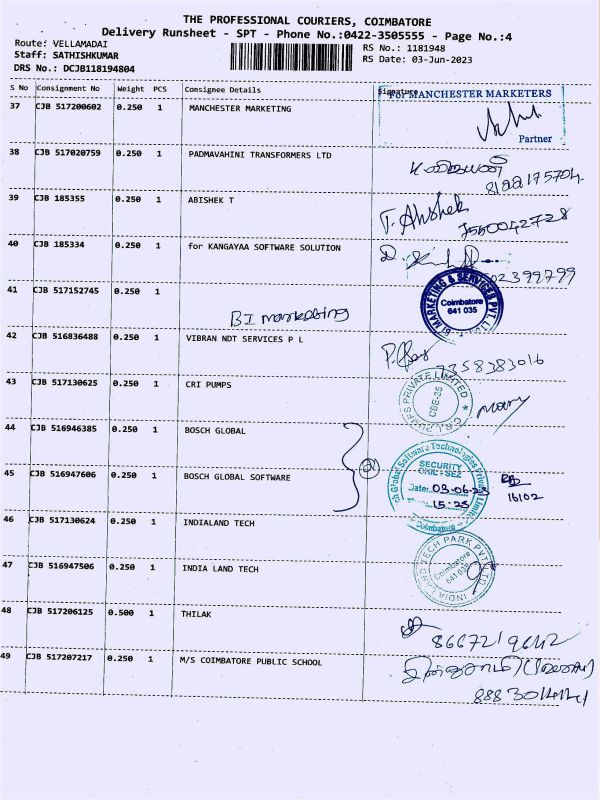 THE PROFESSIONAL COURIERS, COIMBATORE
Delivery Runsheet - SPT - Phone No.:0422-3505555 - Page No.:4
Route: VELLAMADAI
RS No.: 1181948
Staff: SATHISHKUMAR
RS Date: 03-Jun-2023
DRS No.: DCJB118194804
S No Consignment No Weight PCS Consignee Details Signature
For MANCHESTER MARKETERS
37 CJB 517200602 0.250 1 MANCHESTER MARKETING
Partner
38 CJB 517020759 0.250 1 PADMAVAHINI TRANSFORMERS LTD
39 CJB 185355 0.250 1 ABISHEK T
T. Abishek
7550042728
40 CJB 185334 0.250 1 for KANGAYAA SOFTWARE SOLUTION
41 CJB 517152745 0.250 1
BI marketing
BI MARKETING & SERVICES PVT. LTD
Coimbatore
641 035
42 CJB 516836488 0.250 1 VIBRAN NDT SERVICES P L
7358383016
43 CJB 517130625 0.250 1 CRI PUMPS
C.R.I. PUMPS PRIVATE LIMITED
CBE-35
44 CJB 516946385 0.250 1 BOSCH GLOBAL
45 CJB 516947606 0.250 1 BOSCH GLOBAL SOFTWARE
Bosch Global Software Technologies Private Limited
SECURITY
Date: 03-06-23
15-25
Coimbatore
16102
46 CJB 517130624 0.250 1 INDIALAND TECH
47 CJB 516947506 0.250 1 INDIA LAND TECH
INDIA LAND TECH PARK PVT LTD
Coimbatore
641 035
48 CJB 517206125 0.500 1 THILAK
8667219642
49 CJB 517207217 0.250 1 M/S COIMBATORE PUBLIC SCHOOL